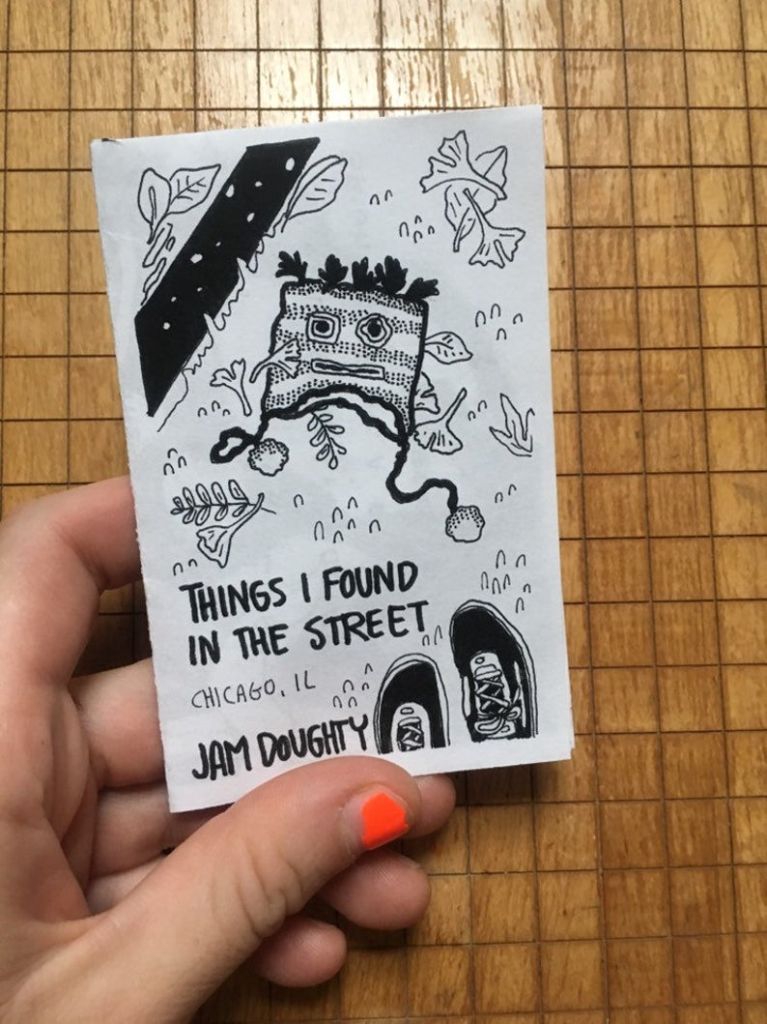 THINGS I FOUND
IN THE STREET
CHICAGO, IL
JAM DOUGHTY